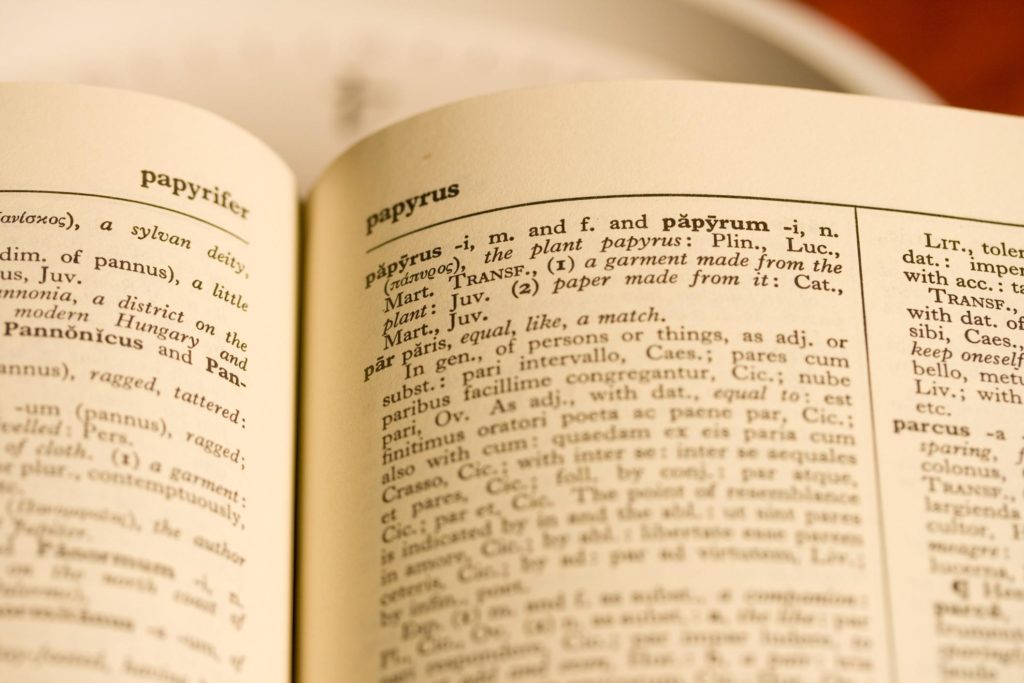 papyrifer
ανίσκος), a sylvan deity,
dim. of pannus), a little
us, Juv.
annonia, a district on the
modern Hungary and
Pannŏnĭcus and Pan-
annus), ragged, tattered:
-um (pannus), ragged;
velled: Pers.
of cloth. (1) a garment:
e plur., contemptuously,
the author
Pănormum -i, n.
on the north coast of
papyrus
păpȳrus -i, m. and f. and păpȳrum -i, n.
(πάπυρος), the plant papyrus: Plin., Luc.,
Mart. TRANSF., (1) a garment made from the
plant: Juv. (2) paper made from it: Cat.,
Mart., Juv.
pār păris, equal, like, a match.
In gen., of persons or things, as adj. or
subst.: pari intervallo, Caes.; pares cum
paribus facillime congregantur, Cic.; nube
pari, Ov. As adj., with dat., equal to: est
finitimus oratori poeta ac paene par, Cic.;
also with cum: quaedam ex eis paria cum
Crasso, Cic.; with inter se: inter se aequales
et pares, Cic.; foll. by conj.: par atque,
Cic.; par et, Cic. The point of resemblance
is indicated by in and the abl.: ut sint pares
in amore, Cic.; by abl.: libertate esse parem
ceteris, Cic.; by ad: par ad virtutem, Liv.;
by infin., poet.
LIT., toler
dat.: imper
with acc.: ta
TRANSF.,
with dat. of
sibi, Caes.,
keep oneself
bello, metu
Liv.; with
etc.
parcus -a
sparing, f
colonus,
TRANSF.,
largienda
cultor, H
meagre:
lucerna,